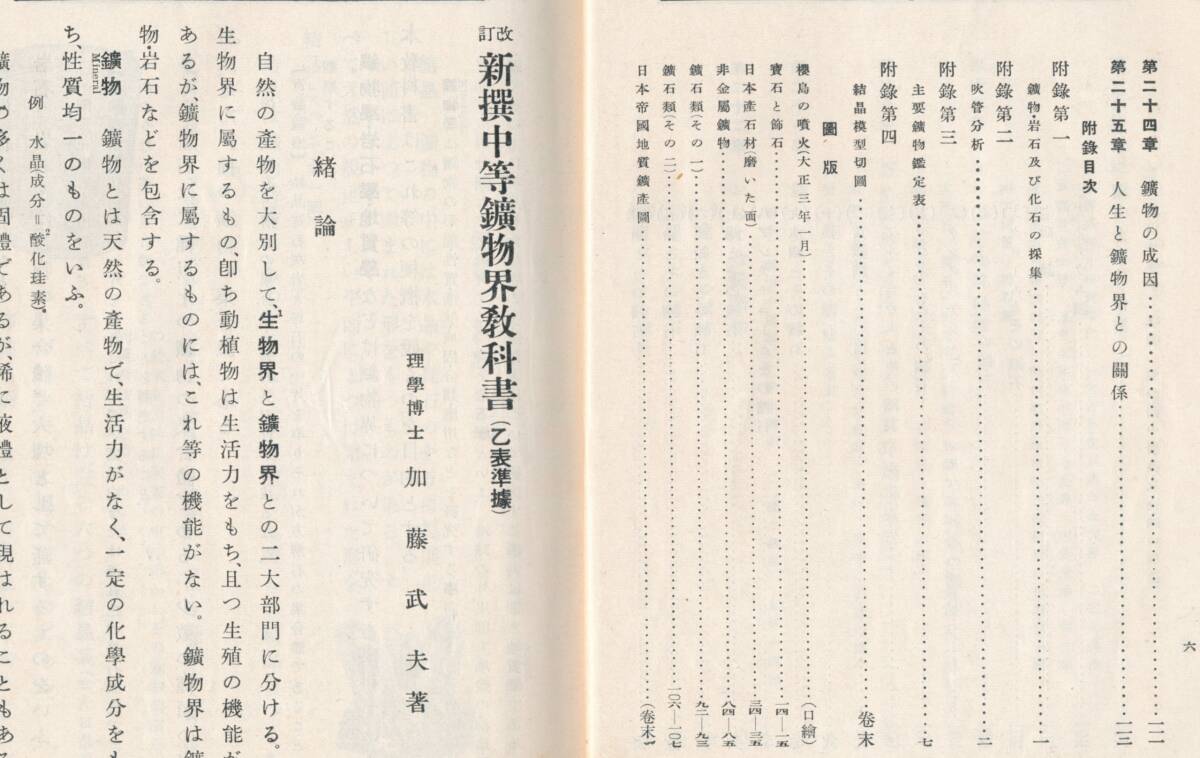 第二十四章　鑛物の成因…………一一一
第二十五章　人生と鑛物界との關係…………一一三
附錄目次
附錄第一
鑛物・岩石及び化石の採集…………一
附錄第二
吹管分析…………二
附錄第三
主要鑛物鑑定表…………七
附錄第四
結晶模型切圖　卷末
圖版
櫻島の噴火(大正三年一月)…………(口繪)
寶石と飾石…………一四—一五
日本產石材(磨いた面)…………三四—三五
非金屬鑛物…………八四—八五
鑛石類(その一)…………九二—九三
鑛石類(その二)…………一〇六—一〇七
日本帝國地質鑛產圖…………(卷末
六
改訂 新撰中等鑛物界敎科書(乙表準據)
理學博士　加藤武夫著
緒論
自然の產物を大別して、生物界1と鑛物界との二大部門に分ける。
生物界に屬するもの、卽ち動植物は生活力をもち、且つ生殖の機能が
あるが、鑛物界に屬するものには、これ等の機能がない。鑛物界は鑛
物・岩石などを包含する。
鑛物 Mineral　鑛物とは天然の產物で、生活力がなく、一定の化學成分をも
ち、性質均一のものをいふ。
例　水晶(成分＝酸化硅素2)。
鑛物の多くは固體であるが、稀に液體として現はれることもある